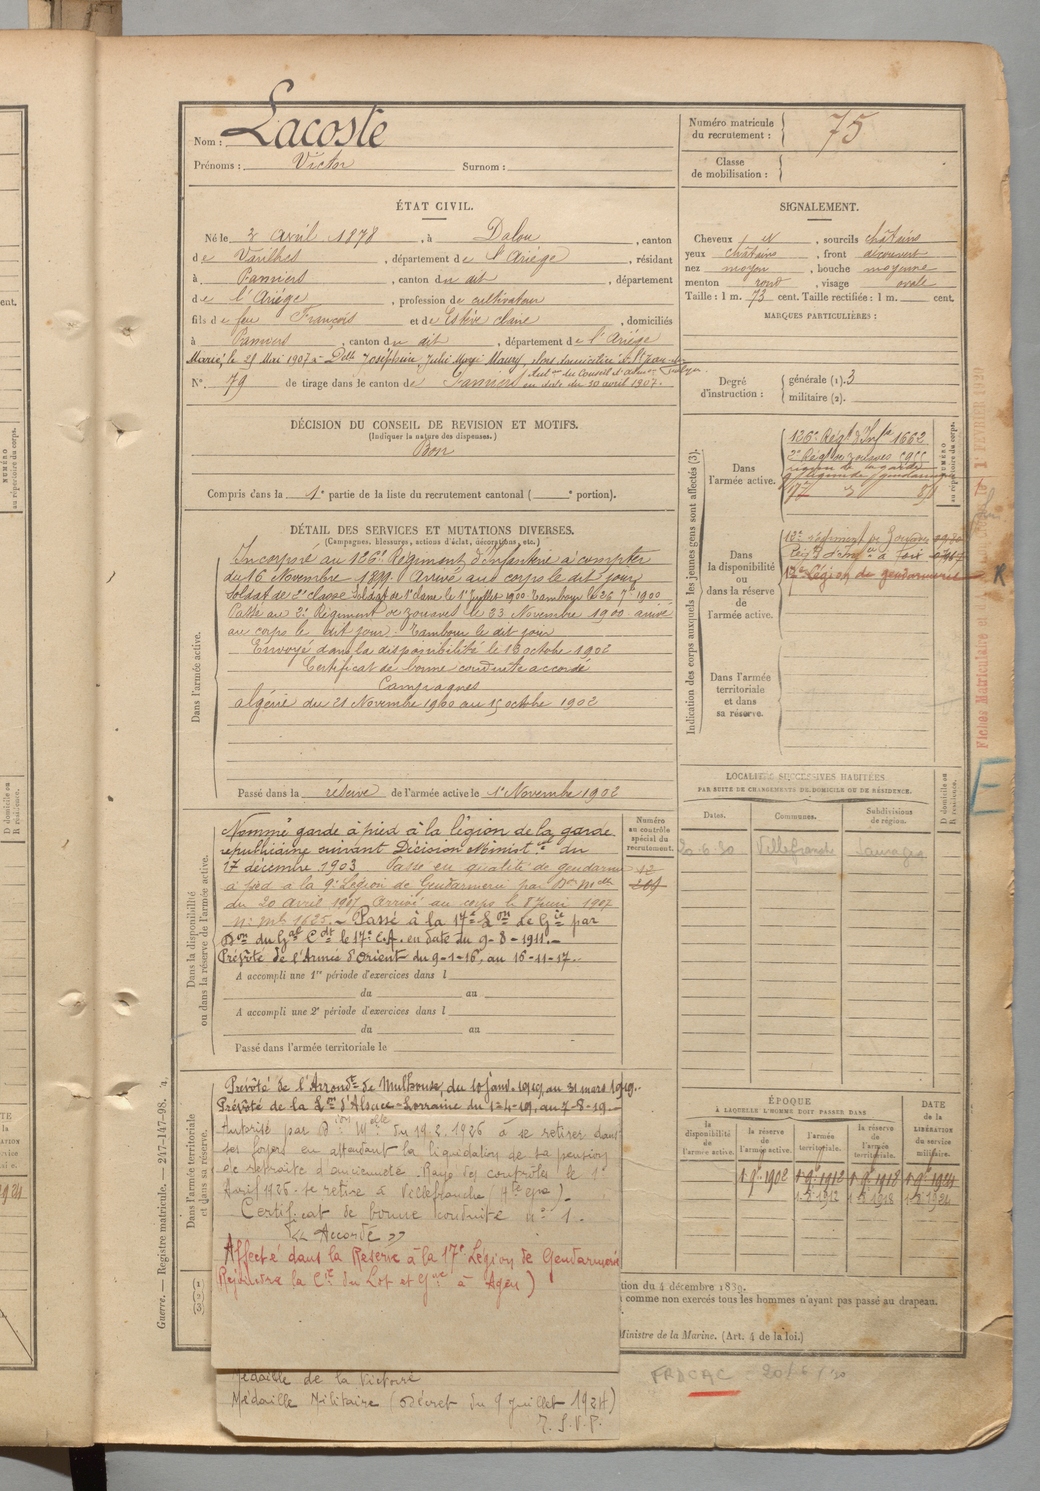 Nom : Lacoste
Prénoms : Victor Surnom :
Numéro matricule du recrutement : 75
Classe de mobilisation :
ÉTAT CIVIL.
Né le 2 Avril 1878, à Dalou, canton
de Varilhes, département de l'Ariége, résidant
à Pamiers, canton du dit, département
de l'Ariége, profession de cultivateur
fils de feu François et de Estève claire, domiciliés
à Pamiers, canton du dit, département de l'Ariége
Marié le 25 Mai 1907 à Delle Joséphine, Julie Maury,
en date du 30 avril 1907.
N° 79 de tirage dans le canton de Pamiers
DÉCISION DU CONSEIL DE REVISION ET MOTIFS.
(Indiquer la nature des dispenses.)
Bon
Compris dans la 1e partie de la liste du recrutement cantonal ( e portion).
SIGNALEMENT.
Cheveux , sourcils châtains
yeux châtains, front découvert
nez moyen, bouche moyenne
menton rond, visage ovale
Taille : 1 m. 73 cent. Taille rectifiée : 1 m. cent.
MARQUES PARTICULIÈRES :
Degré d'instruction : générale (1). 3
militaire (2).
DÉTAIL DES SERVICES ET MUTATIONS DIVERSES.
(Campagnes, blessures, actions d'éclat, décorations, etc.)
Dans l'armée active.
Incorporé au 126e Régiment d'Infanterie à compter
du 16 Novembre 1899. Arrivé au corps le dit jour
Soldat de 2e classe Soldat de 1e classe le 1er Juillet 1900. Tambour le 26 7bre 1900
Passé au 2e Régiment de zouaves le 23 Novembre 1900 arrivé
au corps le dit jour. Tambour le dit jour
Envoyé dans la disponibilité le 18 octobre 1902
Certificat de bonne conduite accordé
Campagnes
algérie du 21 Novembre 1900 au 15 octobre 1902
Passé dans la réserve de l'armée active le 1er Novembre 1902
Indication des corps auxquels les jeunes gens sont affectés (3).
NUMÉRO au répertoire du corps.
Dans l'armée active.
126e Régt d'Infie 1662
2e Régt de zouaves
légion de la garde
Dans la disponibilité ou dans la réserve de l'armée active.
17e Légion de gendarmerie
Dans l'armée territoriale et dans sa réserve.
LOCALITÉS SUCCESSIVES HABITÉES
PAR SUITE DE CHANGEMENTS DE DOMICILE OU DE RÉSIDENCE.
Dates. Communes. Subdivisions de région. D domicile ou R résidence.
20.6.30 Villefranche
Numéro au contrôle spécial du recrutement.
Dans la disponibilité ou dans la réserve de l'armée active.
Nommé garde à pied à la légion de la garde
républicaine suivant Décision Ministle du
17 décembre 1903 Passé en qualité de gendarme
à pied à la 9e Légion de Gendarmerie par Don Melle
du 20 Avril 1907 Arrivé au corps le 8 Juin 1907
No mle 1625. – Passé à la 17e Lon de Gie par
Don du Gal Cdt le 17e C.A. en date du 9-8-1911. –
Prévôté de l'Armée d'Orient du 9-1-16, au 16-11-17. –
A accompli une 1re période d'exercices dans l
du au
A accompli une 2e période d'exercices dans l
du au
Passé dans l'armée territoriale le
Dans l'armée territoriale et dans sa réserve.
Prévôté de l'Arrondt de Mulhouse, du 10 janv. 1919, au 31 mars 1919. –
Prévôté de la Lon d'Alsace-Lorraine du 1-4-19, au 7-8-19. –
Autorisé par Don Melle du 19 2. 1926 à se retirer dans
ses foyers en attendant la liquidation de sa pension
de retraite d'ancienneté. Rayé des contrôles le 1er
Avril 1926. se retire à Villefranche (Hte Gne) –
Certificat de bonne conduite no 1.
« Accordé »
Affecté dans la Reserve à la 17e Légion de Gendarmerie
Rejoindra la Cie du Lot et Gne à Agen)
Médaille de la Victoire
Médaille Militaire (Décret du 9 Juillet 1924)
T. S. V. P.
ÉPOQUE
À LAQUELLE L'HOMME DOIT PASSER DANS
la disponibilité de l'armée active. la réserve de l'armée active. l'armée territoriale. la réserve de l'armée territoriale. DATE de la LIBÉRATION du service militaire.
1 9bre 1902 1 9bre 1912 1 9bre 1918 1 9bre 1924
tion du 4 décembre 1889.
comme non exercés tous les hommes n'ayant pas passé au drapeau.
Ministre de la Marine. (Art. 4 de la loi.)
FRDCAC
Guerre. — Registre matricule. — 247-147-98.
E